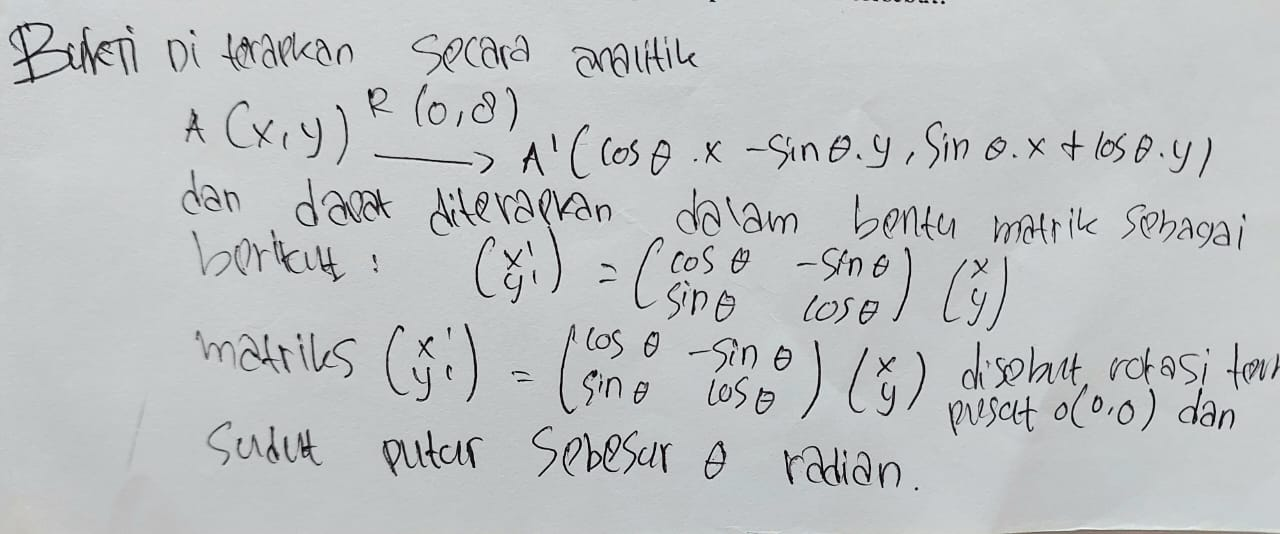 Bukti Di terapkan secara analitik
A (x,y) R (0,θ) → A' (cos θ .x - sin θ.y, Sin θ.x + cos θ.y)
dan dapat diterapkan dalam bentu matrik sebagai
berikut : (x' y') = (cos θ -sin θ sin θ cos θ) (x y)
matriks (x' y') = (cos θ -sin θ sin θ cos θ) (x y) disebut rotasi
pusat O(0,0) dan
Sudut putar sebesar θ radian.